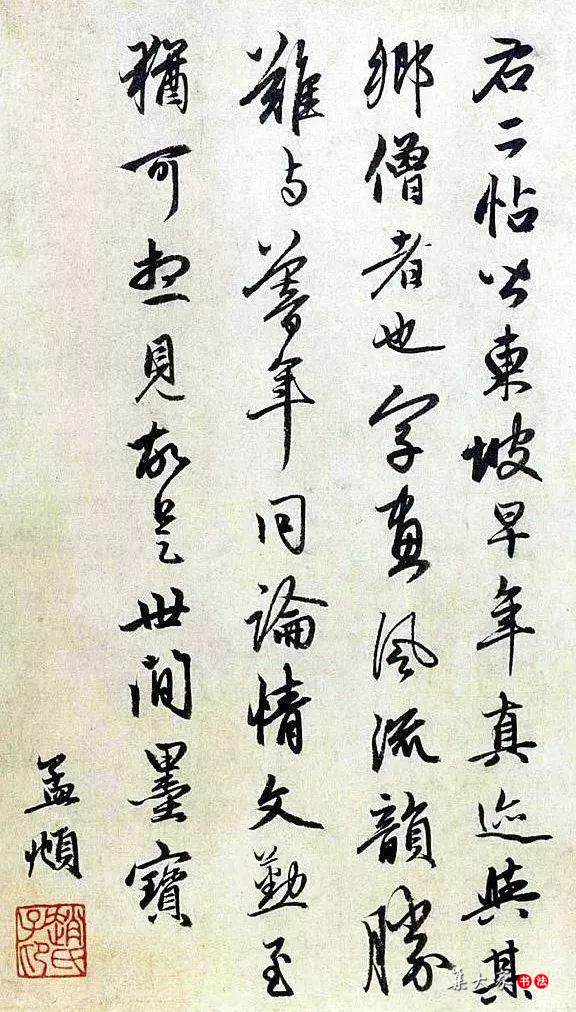 右二帖皆東坡早年真迹與其
鄉僧者也字畫風流韻勝
難與暮年同論情文勤至
猶可想見故是世間墨寶
孟頫
趙氏子印
集大家书法